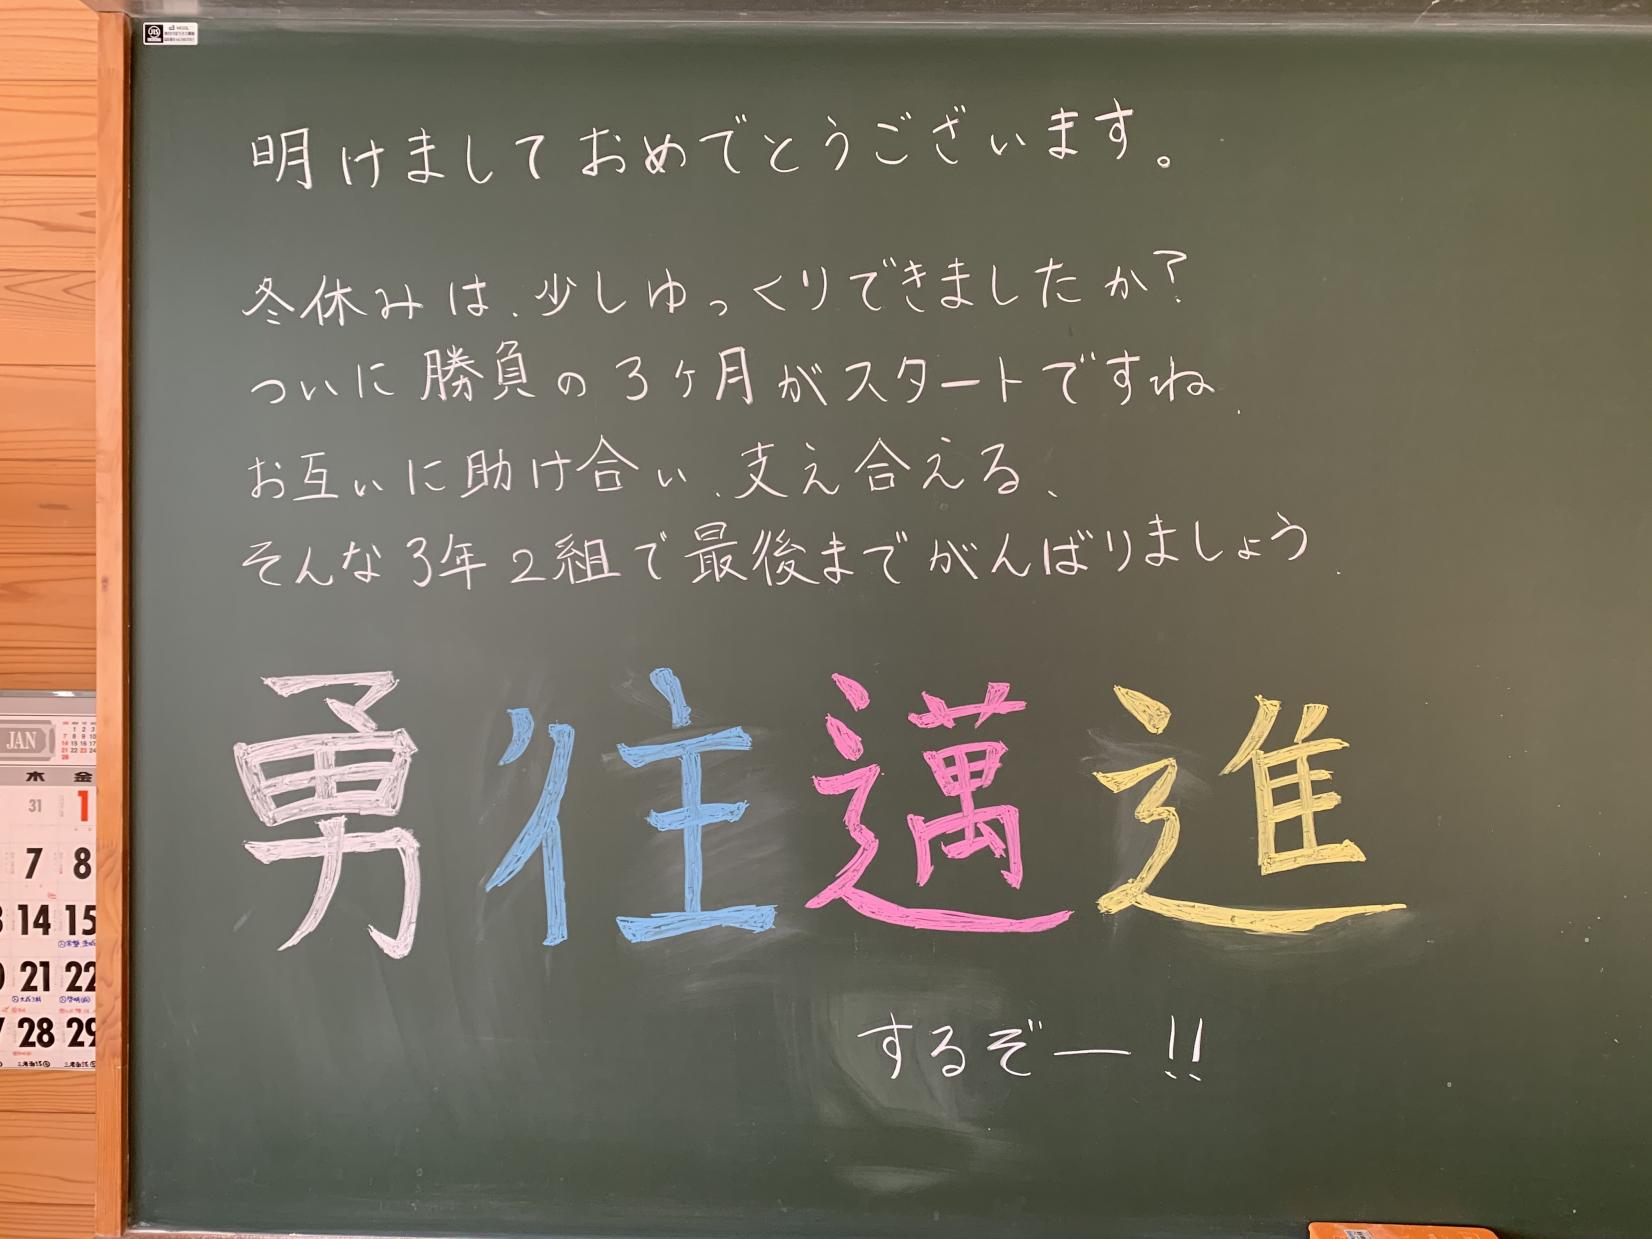 明けましておめでとうございます。
冬休みは、少しゆっくりできましたか?
ついに勝負の3ヶ月がスタートですね.
お互いに助け合い、支え合える、
そんな3年2組で最後までがんばりましょう.
勇往邁進
するぞー!!
JAN
木 金
31 1
7 8
14 15
21 22
28 29